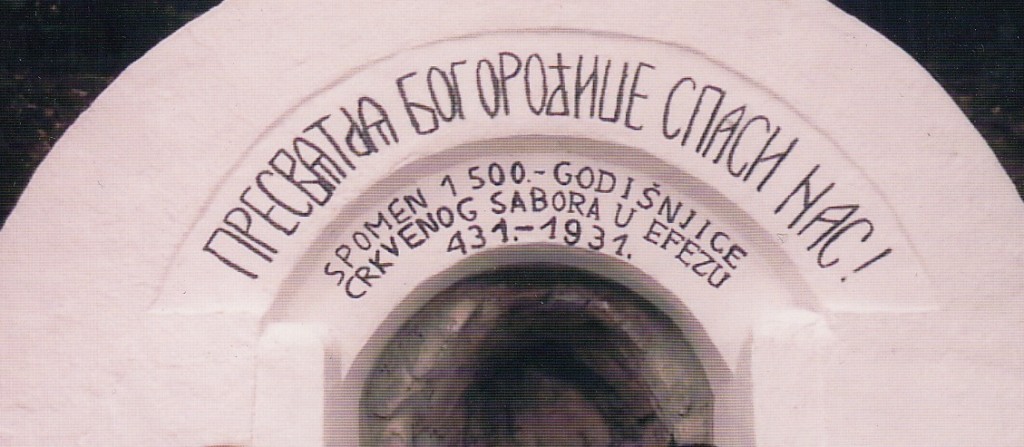 ПРЕСВЯТАЯ БОГОРОДИЦЕ СПАСИ НАС!
SPOMEN 1500.-GODIŠNJICE
CRKVENOG SABORA U EFEZU
431.-1931.